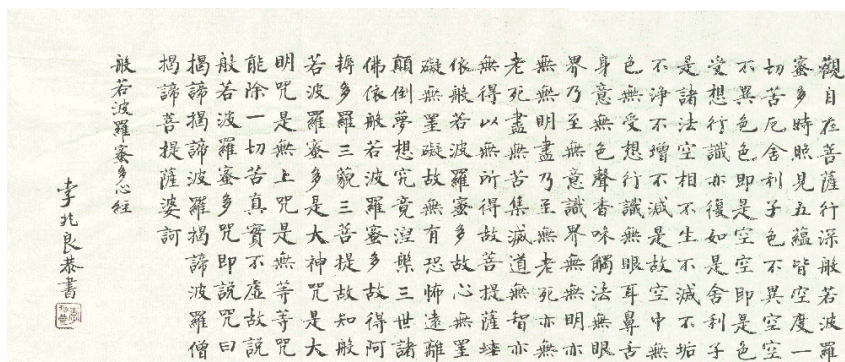 觀自在菩薩行深般若波羅
蜜多時照見五蘊皆空度一
切苦厄舍利子色不異空空
不異色色即是空空即是色
受想行識亦復如是舍利子
是諸法空相不生不滅不垢
不淨不增不減是故空中無
色無受想行識無眼耳鼻舌
身意無色聲香味觸法無眼
界乃至無意識界無無明亦
無無明盡乃至無老死亦無
老死盡無苦集滅道無智亦
無得以無所得故菩提薩埵
依般若波羅蜜多故心無罣
礙無罣礙故無有恐怖遠離
顛倒夢想究竟涅槃三世諸
佛依般若波羅蜜多故得阿
耨多羅三藐三菩提故知般
若波羅蜜多是大神咒是大
明咒是無上咒是無等等咒
能除一切苦真實不虛故說
般若波羅蜜多咒即說咒曰
揭諦揭諦波羅揭諦波羅僧
揭諦菩提薩婆訶
般若波羅蜜多心經
李兆良恭書